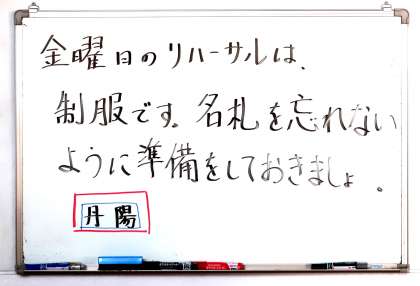 金曜日のリハーサルは、
制服です。名札を忘れない
ように準備をしておきましょ。
丹陽